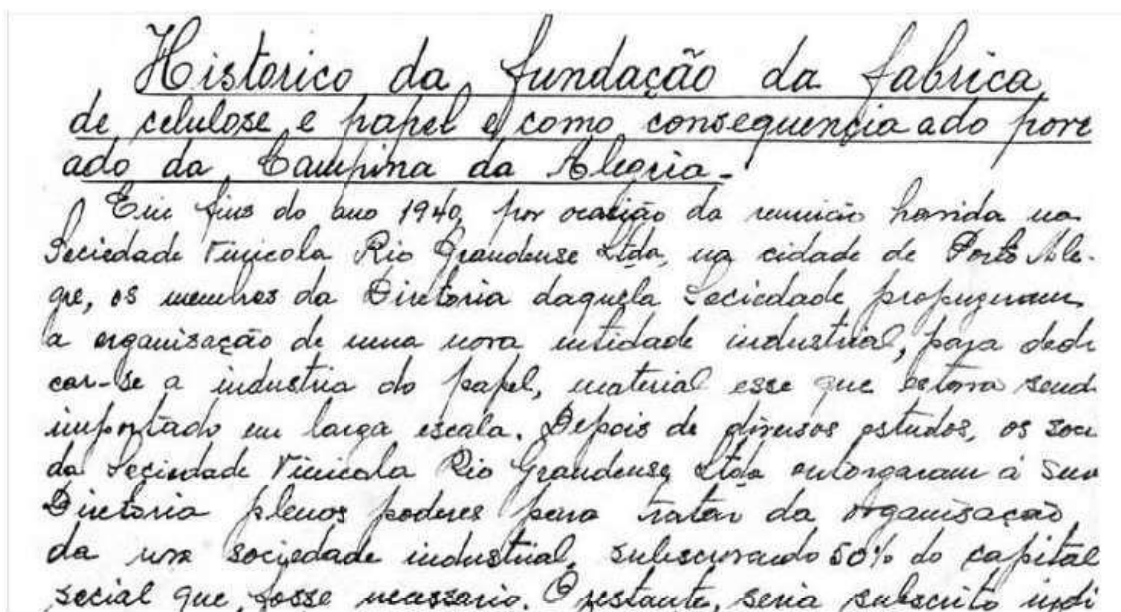 Historico da fundação da fabrica
de celulose e papel e como consequencia ado povo
ado da Campina da Alegria.-
Em fins do ano 1940, por ocasião da reunião havida na
Sociedade Vinicola Rio Grandense Ltda, na cidade de Porto Ale-
gre, os membros da Diretoria daquela Sociedade propuzeram
a organização de uma nova entidade industrial, para dedi
car-se a industria do papel, material esse que estava send
importado em larga escala. Depois de diversos estudos, os soci
da Sociedade Vinicola Rio Grandense Ltda outorgaram à sua
Diretoria plenos poderes para tratar da organisação
da nova sociedade industrial, subscrevendo 50% do capital
social que fosse necessario. O restante, seria subscrito indi